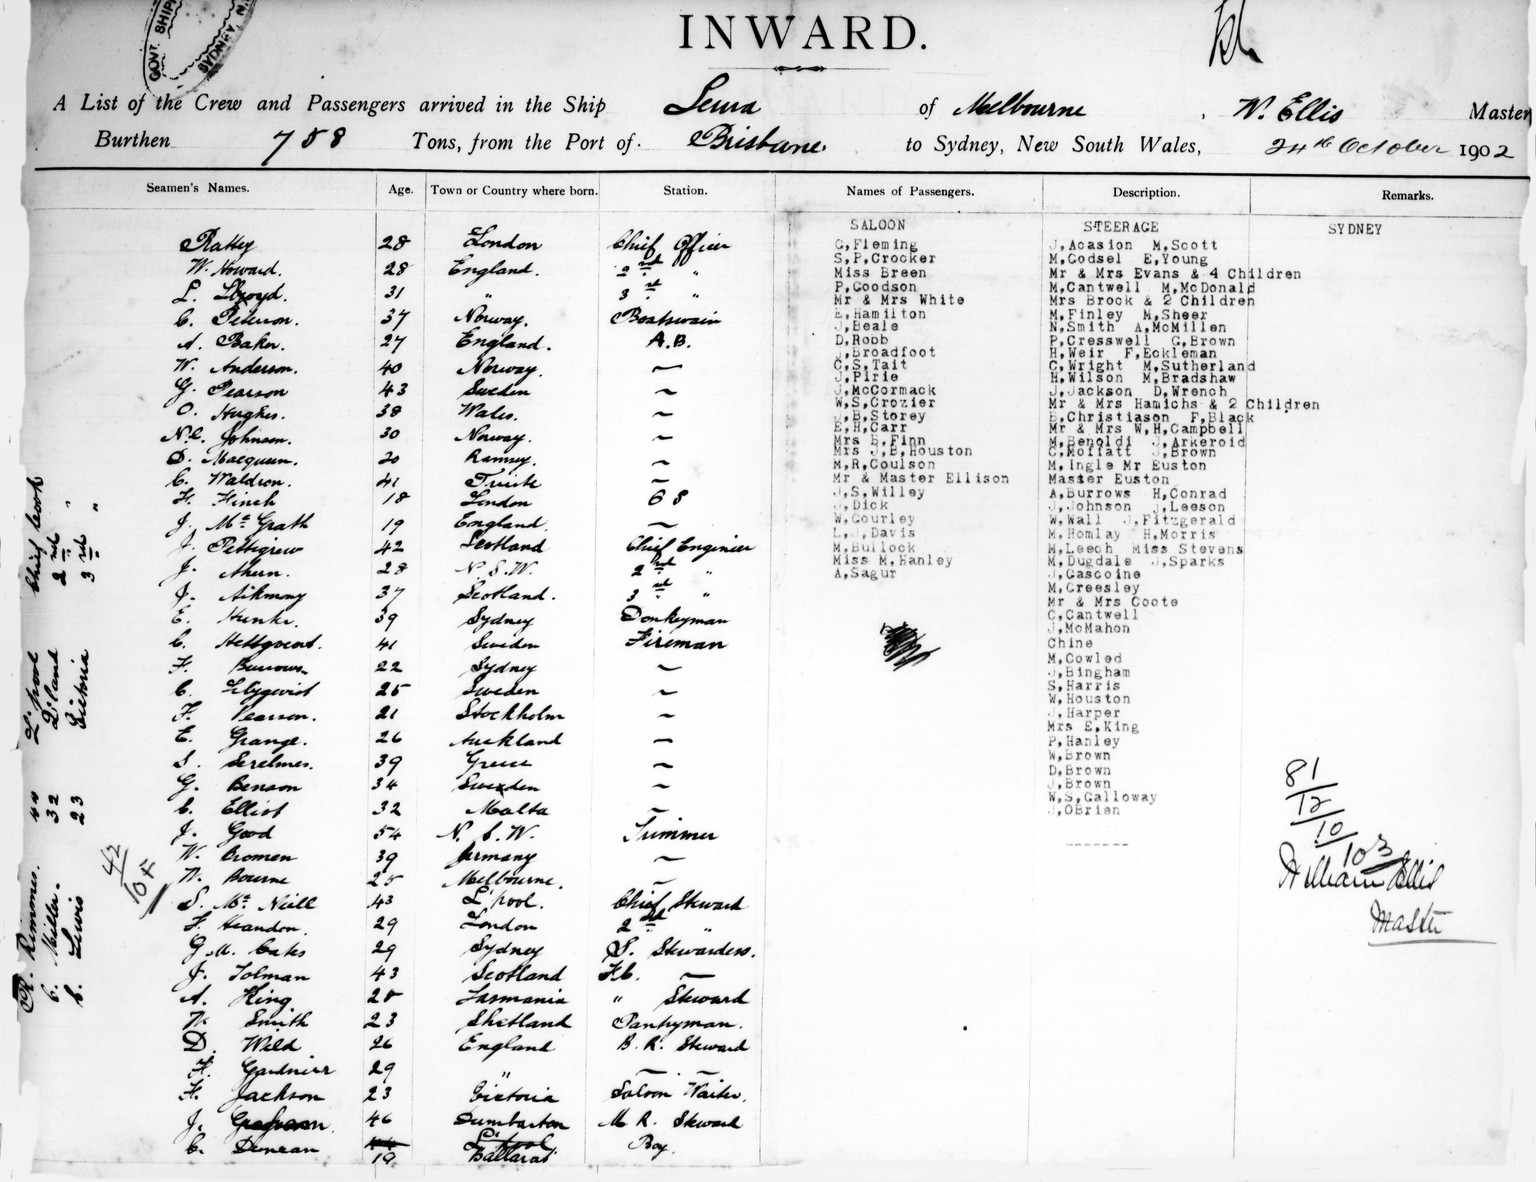 GOVT. SHIP
SYDNEY N.
INWARD.
A List of the Crew and Passengers arrived in the Ship Leura of Melbourne, W. Ellis Master
Burthen 788 Tons, from the Port of Brisbane to Sydney, New South Wales, 24th October 1902
Seamen's Names. Age. Town or Country where born. Station. Names of Passengers. Description. Remarks.
SALOON STEERAGE SYDNEY
28 London Chief Officer
W. Howard. 28 England. 2nd "
L. Lloyd. 31 " 3rd "
C. Peterson. 37 Norway. Boatswain
A. Baker. 27 England. A.B.
W. Anderson. 40 Norway. ~
G. Pearson 43 Sweden ~
O. Hughes. 38 Wales. ~
N.C. Johnsen. 30 Norway. ~
D. Macqueen. 20 Ramsey. ~
C. Waldron. 41 ~
H. Finch 18 London
J. McGrath 19 England. ~
J. Pettigrew 42 Scotland Chief Engineer
J. Ahern. 28 N.S.W. 2nd "
J. Aikmany 37 Scotland. 3rd "
E. 39 Sydney Donkeyman
C. 41 Sweden Fireman
F. Burrows 22 Sydney ~
C. 25 Sweden ~
F. Pearson. 21 Stockholm ~
E. Grange. 26 Auckland ~
S. 39 Greece ~
G. Benson 34 Sweden ~
C. Elliot 32 Malta ~
J. Good 54 N.S.W. Trimmer
W. Cromen 39 Germany ~
W. Bourne 25 Melbourne. ~
S. McNeill 43 L'pool. Chief Steward
F. Heandon. 29 London 2nd "
G.M. Cates 29 Sydney S. Stewardess.
J. Tolman 43 Scotland F.C. ~
A. King 28 Tasmania " Steward
W Smith 23 Shetland Pantryman.
D. Wild 26 England B.R. Steward
F. Gardnier 29 " ~ ~
H. Jackson 23 Victoria Saloon Waiter.
J. Graham. 46 Dumbarton M R. Steward
C. Duncan 19 Ballarat Boy.
G,Fleming
S,P,Crocker
Miss Breen
P,Goodson
Mr & Mrs White
E,Hamilton
J,Beale
D,Robb
J,Broadfoot
C,S,Tait
J,Pirie
J,McCormack
W,S,Crozier
J,B,Storey
E,H,Carr
Mrs B,Finn
Mrs J,E,Houston
M,R,Coulson
Mr & Master Ellison
J,S,Willey
J,Dick
W,Gourley
L,J,Davis
M,Bullock
Miss M,Hanley
A,Sagur
J,Acasion M,Scott
M,Godsel E,Young
Mr & Mrs Evans & 4 Children
M,Cantwell M,McDonald
Mrs Brock & 2 Children
M,Finley M,Sheer
N,Smith A,McMillen
P,Cresswell G,Brown
H,Weir F,Eckleman
C,Wright M,Sutherland
H,Wilson M,Bradshaw
J,Jackson D,Wrench
Mr & Mrs Hamichs & 2 Children
E,Christiason F,Black
Mr & Mrs W,H,Campbell
M,Benoldi J,Arkeroid
C,Moffatt J,Brown
M,Ingle Mr Euston
Master Euston
A,Burrows H,Conrad
J,Johnson J,Leeson
W,Wall J,Fitzgerald
M,Homlay H,Morris
M,Leech Miss Stevens
M,Dugdale J,Sparks
J,Gascoine
M,Greesley
Mr & Mrs Coote
C,Cantwell
J,McMahon
Chine
M,Cowled
J,Bingham
S,Harris
W,Houston
J,Harper
Mrs E,King
P,Hanley
W,Brown
D,Brown
J,Brown
W,S,Galloway
J,OBrien
81
12
10
103
William Ellis
Master
R. Rimmes. 40 L'pool Chief Cook
C. Miller. 32 Q'land 2nd "
C. Lewis 23 Victoria 3rd "
42
104